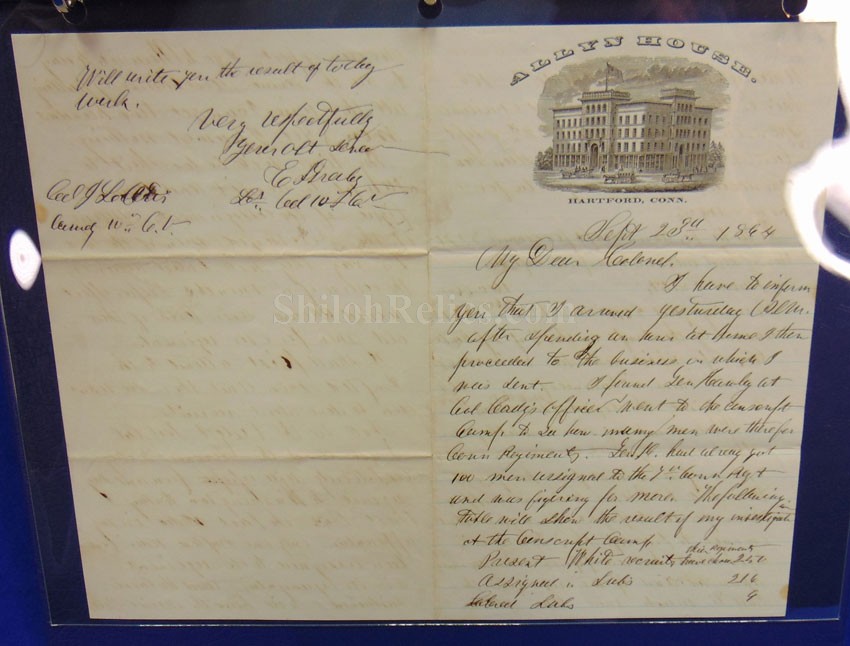 Will write you the result of today
work.
Very respectfully
Your obt servt
E
Lt. Col
Col J
ALLYN HOUSE.
HARTFORD, CONN.
Sept 1864
My Dear Colonel.
I have to inform
you that I arrived yesturday
after spending an hour at home I then
proceeded to the business in which I
was sent. I found Gen Hawly at
Col Cady's Office went to the conscript
Camp to see how many men were there for
Conn Regiments. Gen H. had already got
100 men assigned to the 7th Conn Regt
and was figuring for more. The following
table will show the result of my investigati
at the Conscript Camp
Present White recruits
Assigned " Subs 216
Colored Subs 9
ShilohRelics.com